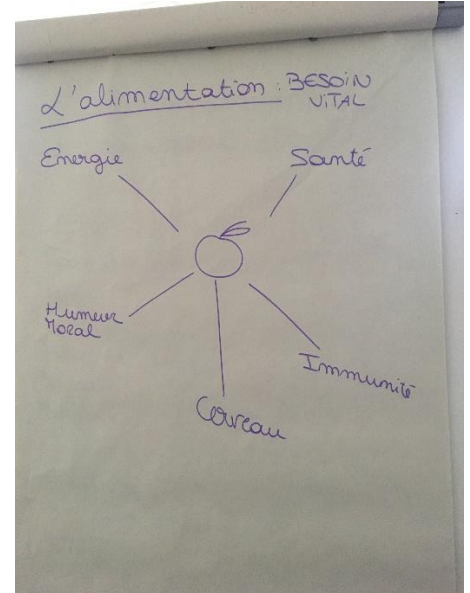 L'alimentation : BESOIN
VITAL
Energie
Santé
Humeur
Moral
Immunité
Cerveau